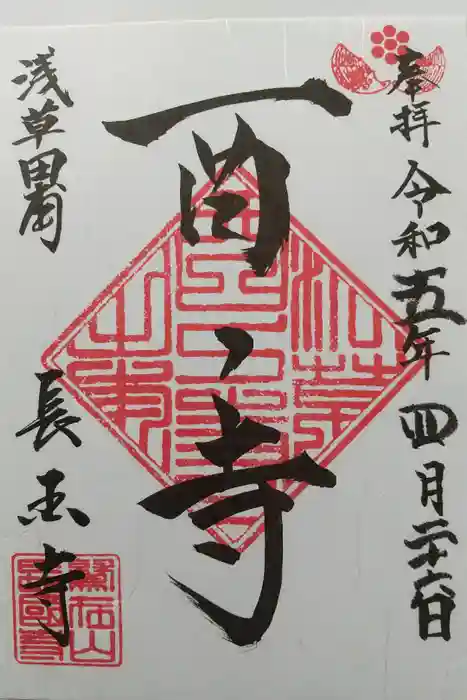 奉拝 令和五年四月二十六日
酉之寺
浅草田甫
長国寺
鷲在山
長國寺